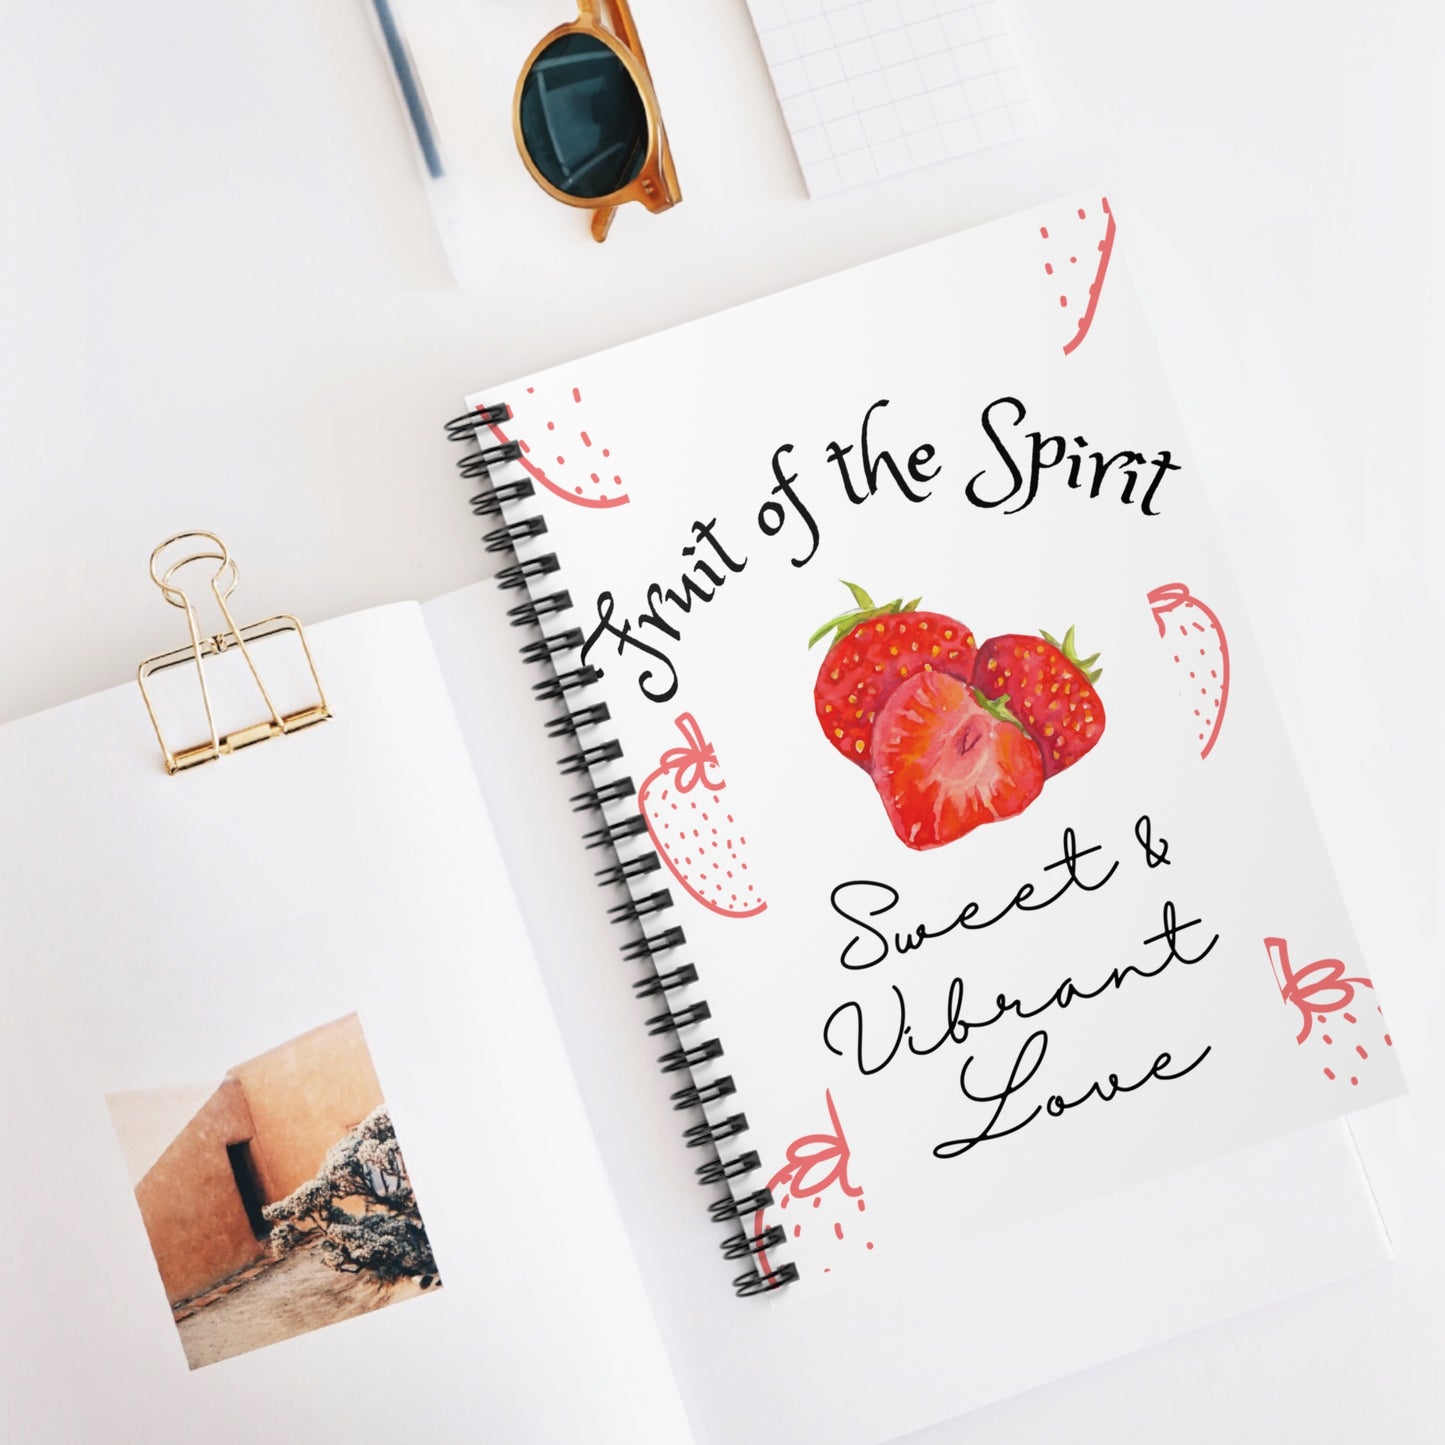 Fruit of the Spirit
Sweet &
Vibrant
Love